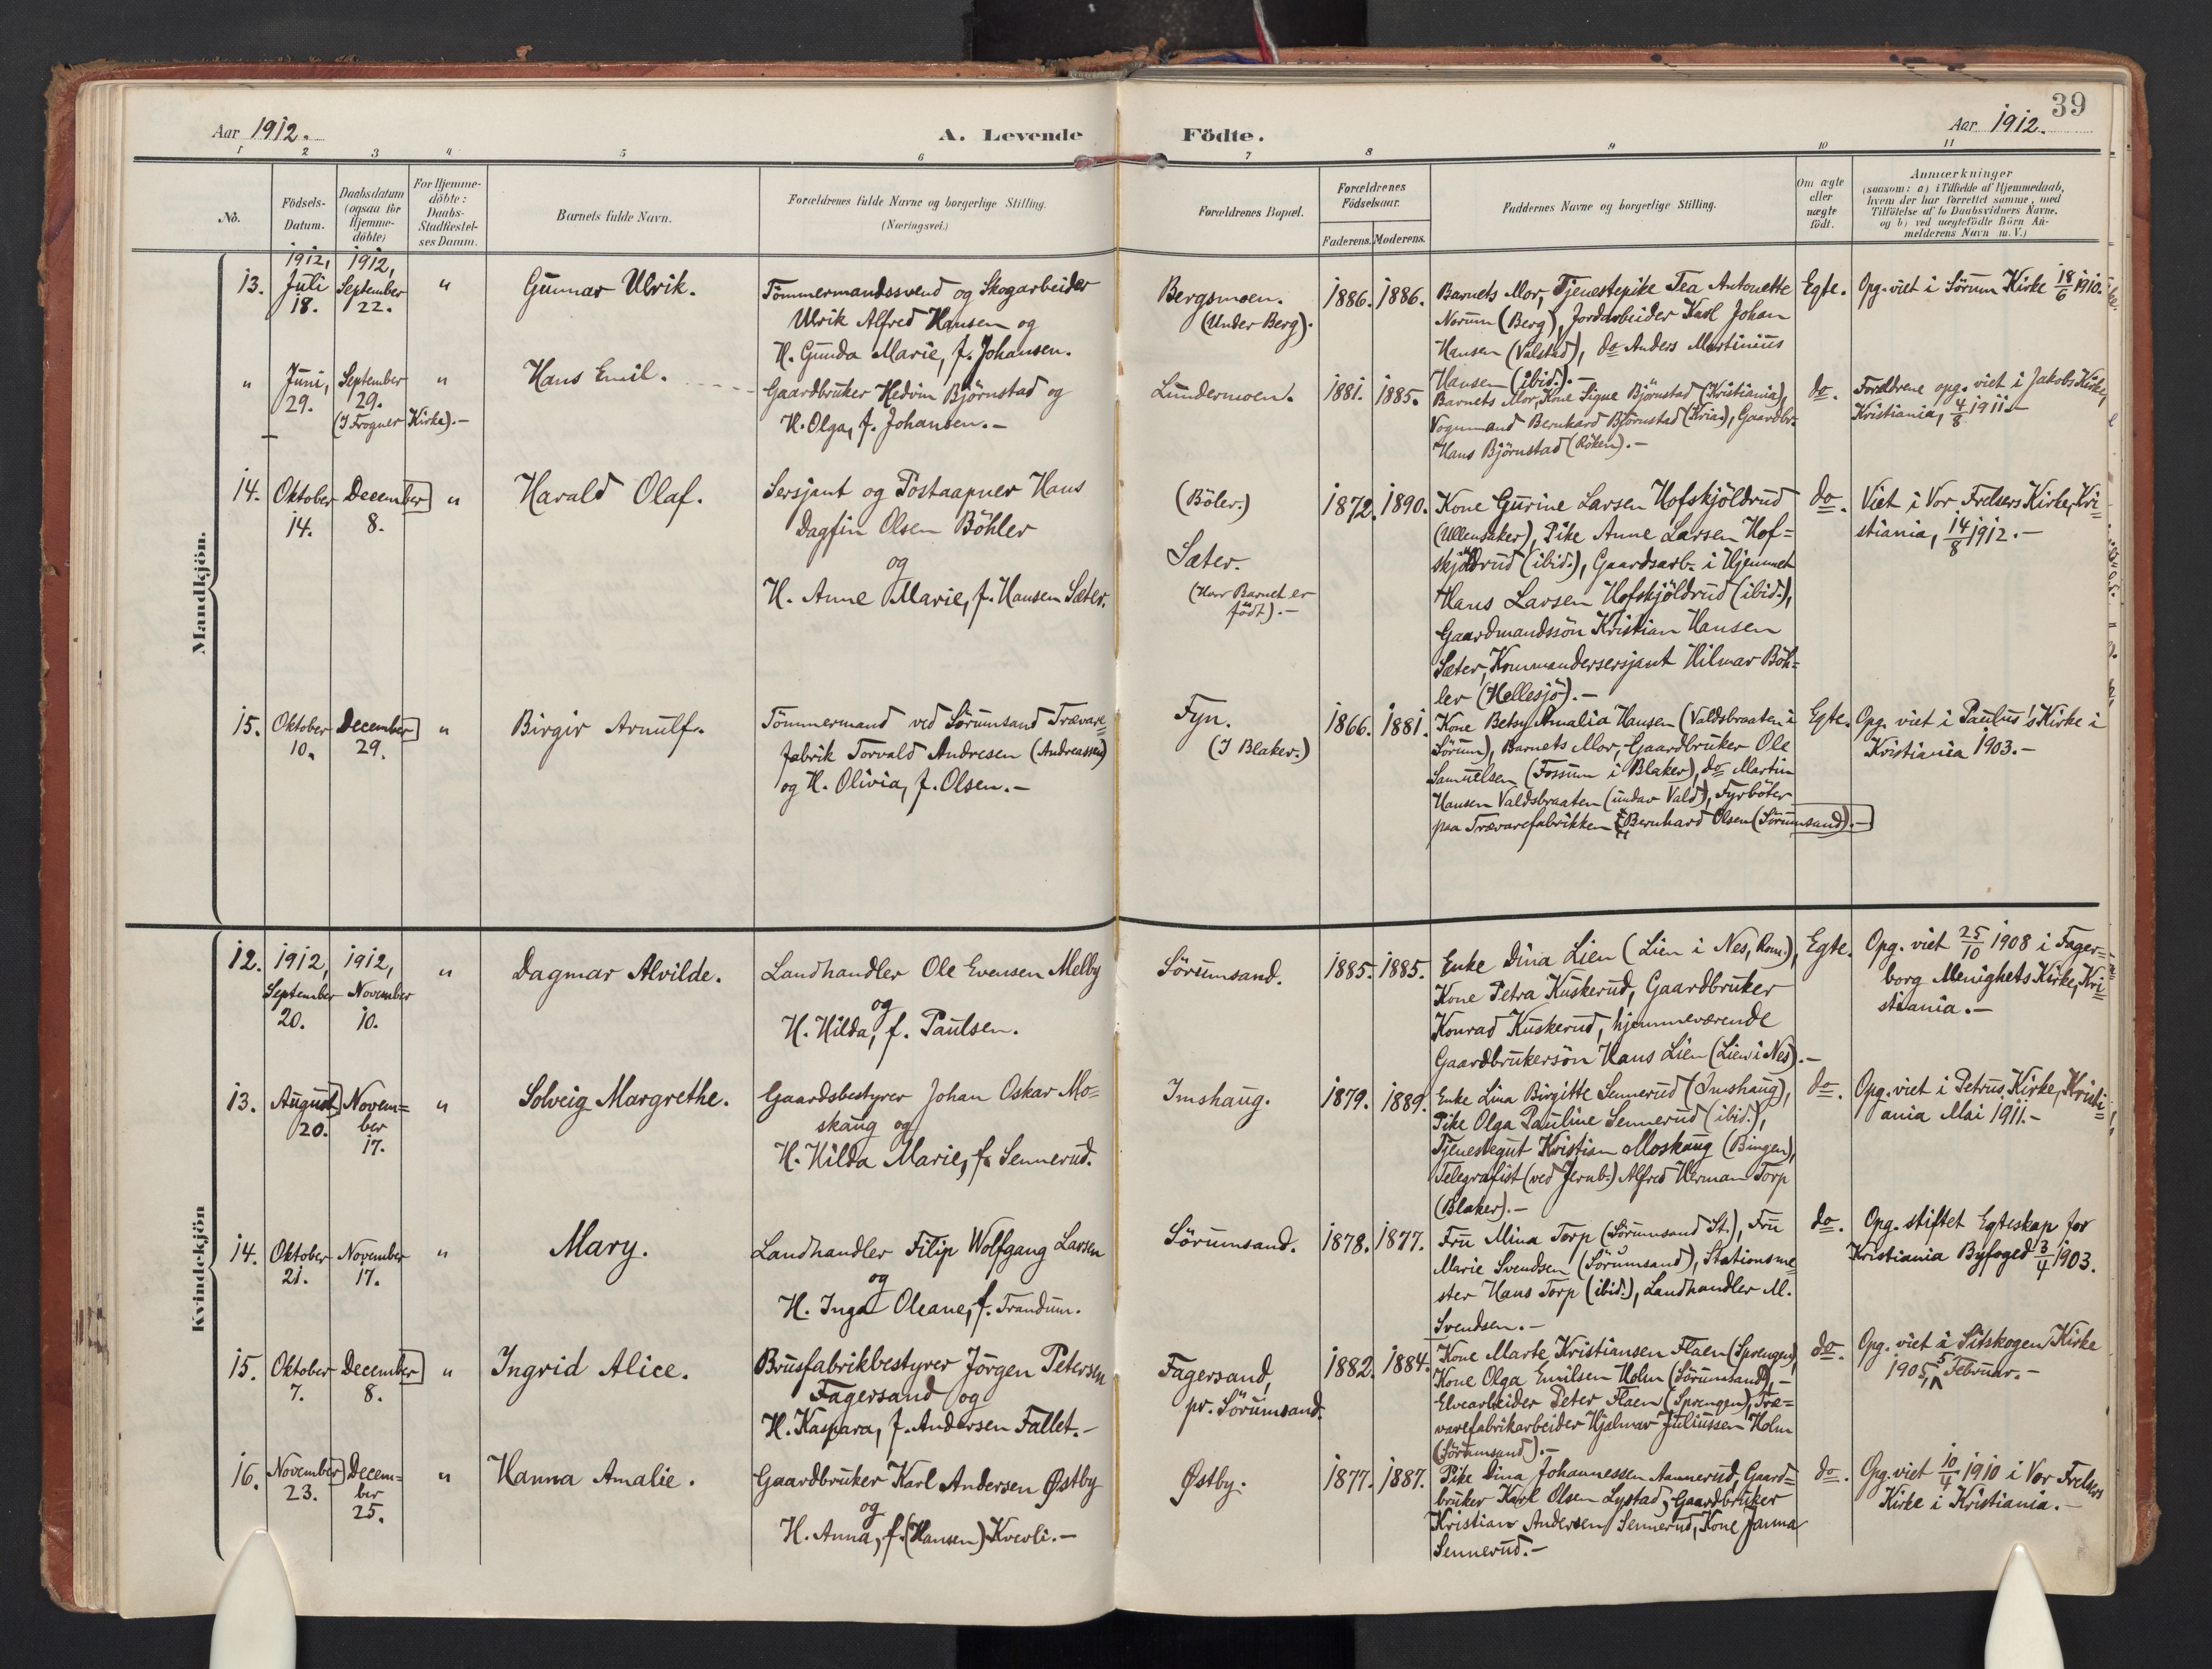 39
Aar 1912.
A. Levende Födte.
Aar 1912.
1 2 3 4 5 6 7 8 9 10 11
No.
Födsels-
Datum.
Daabsdatum
(ogsaa for
Hjemme-
döbte)
For Hjemme-
döbte:
Daabs-
Stadfæstel-
ses Datum.
Barnets fulde Navn.
Forældrenes fulde Navne og borgerlige Stilling.
(Næringsvei.)
Forældrenes Bopæl.
Forældrenes
Födselsaar.
Faderens. Moderens.
Faddernes Navne og borgerlige Stilling.
Om ægte
eller
uægte
födt.
Anmærkninger
(saasom: a) i Tilfælde af Hjemmedaab,
hvem der har forrettet samme, med
Tilföielse af to Daabsvidners Navne,
og b) ved uægtefödte Börn An-
melderens Navn m. V.)
Mandkjön.
13.
1912,
Juli
18.
1912,
September
22.
"
Gunnar Ulrik.
Tömmermandssvend og Skogarbeider
Ulrik Alfred Hansen og
H. Gunda Marie, f. Johansen.
Bergsmoen.
(Under Berg).
1886. 1886.
Barnets Mor, Tjenestepike Tea Antonette
Norum (Berg), Jordarbeider Karl Johan
Hansen (Valstad), do Anders Martinius
Hansen (ibid.).-
Egte.
Opg. viet i Sörum Kirke 18/6 1910.
"
Juni,
29.
September
29.
(I Frogner Kirke).-
"
Hans Emil.
Gaardbruker Hedvin Björnstad og
H. Olga, f. Johansen.-
Lundermoen.
1881. 1885.
Barnets Mor, Kone Signe Björnstad (Kristiania),
Vognmand Bernhard Björnstad (Kria.), Gaardbr.
Hans Björnstad (Röken).-
do.
Forældrene opg. viet i Jakobs Kirke,
Kristiania, 4/8 1911.-
14.
Oktober
14.
December
8.
"
Harald Olaf.
Sersjant og Postaapner Hans
Dagfin Olsen Böhler
og
H. Anne Marie, f. Hansen Sæter.
(Böler.)
Sæter.
(Hvor Barnet er
födt).-
1872. 1890.
Kone Gurine Larsen Hofskjöldrud
(Ullensaker), Pike Anne Larsen Hof=
skjöldrud (ibid.), Gaardsarb. i Hjemmet
Hans Larsen Hofskjöldrud (ibid.),
Gaardmandssön Kristian Hansen
Sæter, Kommandersersjant Hilmar Böh=
ler (Hellesjö).-
do.
Viet i Vor Frelsers Kirke, Kri=
stiania, 14/8 1912.-
15.
Oktober
10.
December
29.
"
Birgir Arnulf.
Tömmermand ved Sörumsand Trævare=
fabrik Torvald Andresen (Andreassen)
og H. Olivia, f. Olsen.-
Fyn.
(I Blaker.)
1866. 1881.
Kone Betsy Amalia Hansen (Valdsbraaten i
Sörum), Barnets Mor, Gaardbruker Ole
Samuelsen (Fossum i Blaker), do Martin
Hansen Valdsbraaten (under Vald), Fyrböter
paa Trævarefabrikken Bernhard Olsen (Sörumsand).-
Egte.
Opg. viet i Paulus's Kirke i
Kristiania 1903.-
Kvindekjön
12.
1912,
September
20.
1912,
November
10.
"
Dagmar Alvilde.
Landhandler Ole Evensen Melby
og
H. Hilda, f. Paulsen.
Sörumsand.
1885. 1885.
Enke Dina Lien (Lien i Nes, Rom.),
Kone Petra Kuskerud, Gaardbruker
Konrad Kuskerud, hjemmeværende
Gaardbrukersön Hans Lien (Lien i Nes).-
Egte.
Opg. viet 25/10 1908 i Fager=
borg Menighets Kirke, Kri=
stiania.-
13.
August
20.
Novem=
ber
17.
"
Solveig Margrethe.
Gaardsbestyrer Johan Oskar Mo=
skaug og
H. Hilda Marie, f. Sennerud.
Imshaug.
1879. 1889.
Enke Lina Birgitte Sennerud (Imshaug),
Pike Olga Pauline Sennerud (ibid.),
Tjenestegut Kristian Moskaug (Bingen),
Telegrafist (ved Jernb.) Alfred Herman Torp
(Blaker).-
do.
Opg. viet i Petrus Kirke, Kristi=
ania Mai 1911.-
14.
Oktober
21.
November
17.
"
Mary.
Landhandler Filip Wolfgang Larsen
og
H. Inga Oleane, f. Trandum.
Sörumsand.
1878. 1877.
Fru Mina Torp (Sörumsand St.), Fru
Marie Svendsen (Sörumsand), Stationsme=
ster Hans Torp (ibid.), Landhandler M.
Svendsen.-
do.
Opg. stiftet Egteskap for
Kristiania Byfoged 3/4 1903.
15.
Oktober
7.
December
8.
"
Ingrid Alice.
Brusfabrikbestyrer Jörgen Petersen
Fagersand og
H. Kaspara, f. Andersen Fallet.-
Fagersand,
pr. Sörumsand.
1882. 1884.
Kone Marte Kristiansen Flaen (Sprengen),
Kone Olga Emilsen Holm (Sörumsand),-
Elvearbeider Peter Flaen (Sprengen), Træ=
varefabrikarbeider Hjalmar Juliussen Holm
(Sörumsand).-
do.
Opg. viet i Sitskogen Kirke
1905, 5 Februar.-
16.
November
23.
Decem=
ber
25.
"
Hanna Amalie.
Gaardbruker Karl Andersen Østby
og
H. Anna, f. (Hansen) Kvevli.-
Østby.
1877. 1887.
Pike Dina Johannessen Aannerud, Gaard=
bruker Karl Olsen Lystad, Gaardbruker
Kristian Andersen Sennerud, Kone Janna
Sennerud.-
do.
Opg. viet 10/4 1910 i Vor Frelsers
Kirke i Kristiania.-